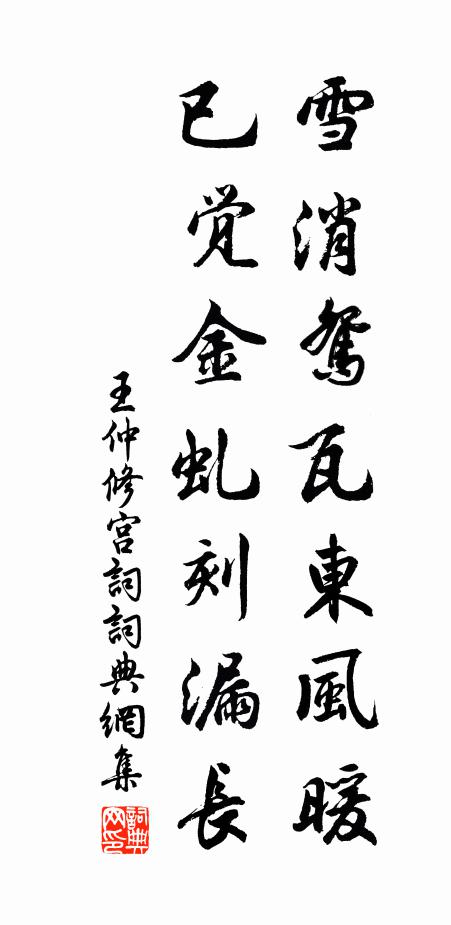 雪消鴛瓦東風暖
已觉金虬刻漏長
王仲修宫詞詞典網集
詞典网印